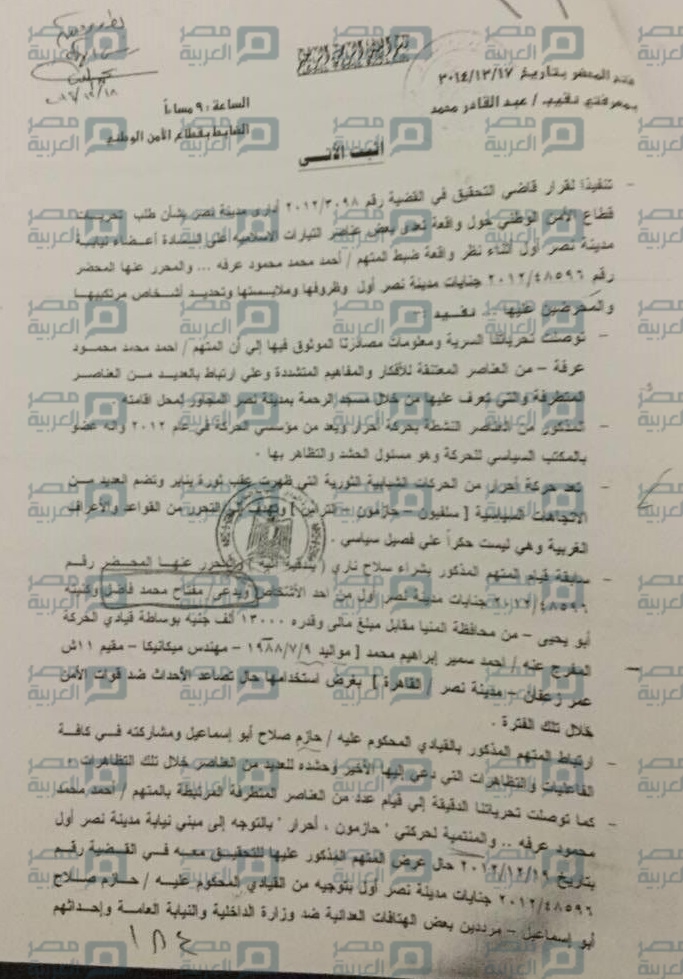 فتح المحضر بتاريخ ٢٠١٤/١٢/١٧
الساعة : ٩ مساءاً
بمعرفتي نقيب / عبد القادر محمد
الضابط بقطاع الأمن الوطني
اثبت الآتـــى
– تنفيذا لقرار قاضي التحقيق في القضية رقم ٢٠١٢/٣٠٩٨ إداري مدينة نصر بشأن طلب تحريـــات
قطاع الأمن الوطني حول واقعة تعدى بعض عناصر التيارات الاسلاميه على السادة أعــضاء نيابــة
مدينة نصر أول أثناء نظر واقعة ضبط المتهم / أحمد محمد محمود عرفه ... والمحرر عنها المحضر
رقم ٢٠١٢/٤٨٥٩٦ جنايات مدينة نصر أول وظروفها وملابستها وتحديــد أشــخاص مرتكبيهــا
والمحرضين عليها .. نفيــد :-
– توصلت تحرياتنا السرية ومعلومات مصادرنا الموثوق فيها إلي أن المتهم / احمد محمد محمــود
عرفة – من العناصر المعتنقة للأفكار والمفاهيم المتشددة وعلي ارتباط بالعديــد مــن العناصــر
المتطرفة والتي تعرف عليها من خلال مسجد الرحمة بمدينة نصر المجاور لمحل اقامته
– المذكور من العناصر النشطة بحركة أحرار ويعد من مؤسسي الحركة في عام ٢٠١٢ وانه عضو
بالمكتب السياسي للحركة وهو مسئول الحشد والتظاهر بها .
– تعد حركة أحرار من الحركات الشبابية الثورية التي ظهرت عقب ثورة يناير وتضم العديد مــن
الاتجاهات السياسية [ سلفيون – حازمون – التراس ] وتهدف إلي التحرر من القواعد والأعراف
الغربية وهي ليست حكراً علي فصيل سياسي .
– سابقة قيام المتهم المذكور بشراء سلاح ناري ( بندقية آلية ) والمحرر عنهــا المحــضر رقــم
٢٠١٢/٤٨٥٩٦ جنايات مدينة نصر أول من احد الأشخاص ويدعى/ مفتاح محمد فاضل وكنيته
أبو يحيى – من محافظة المنيا مقابل مبلغ مالى وقدره ١٣٠٠٠ ألف جنيه بوساطة قيادي الحركة
المفرج عنه / احمد سمير إبراهيم محمد [ مواليد ١٩٨٨/٧/٩ – مهندس ميكانيكا – مقيم ١١ش
عمر زعفان – مدينة نصر / القاهرة ] بغرض استخدامها حال تصاعد الأحداث ضد قوات الأمن
خلال تلك الفترة .
– ارتباط المتهم المذكور بالقيادي المحكوم عليه / حازم صلاح أبو إسماعيل ومشاركته فــي كافــة
الفاعليات والتظاهرات التي دعي إليها الأخير وحشده للعديد من العناصر خلال تلك التظاهرات .
– كما توصلت تحرياتنا الدقيقة إلي قيام عدد من العناصر المتطرفة المرتبطة بالمتهم / أحمد محمد
محمود عرفه .. والمنتمية لحركتي " حازمون ، أحرار " بالتوجه إلى مبني نيابة مدينة نصر أول
بتاريخ ٢٠١٢/١٢/١٩ حال عرض المتهم المذكور عليها للتحقيــق معــه فــي القــضية رقــم
٢٠١٢/٤٨٥٩٦ جنايات مدينة نصر أول بتوجيه من القيادي المحكوم عليــه / حــازم صــلاح
أبو إسماعيل – مرددين بعض الهتافات العدائية ضد وزارة الداخلية والنيابة العامــة وإحداثهم
١٨٤
مصر العربية